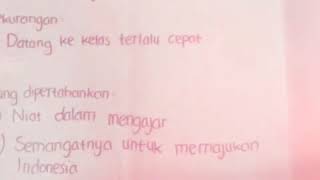 kurangan:
Datang ke kelas terlalu cepat
ng dipertahankan:
) Niat dalam mengajar
) Semangatnya untuk memajukan
Indonesia